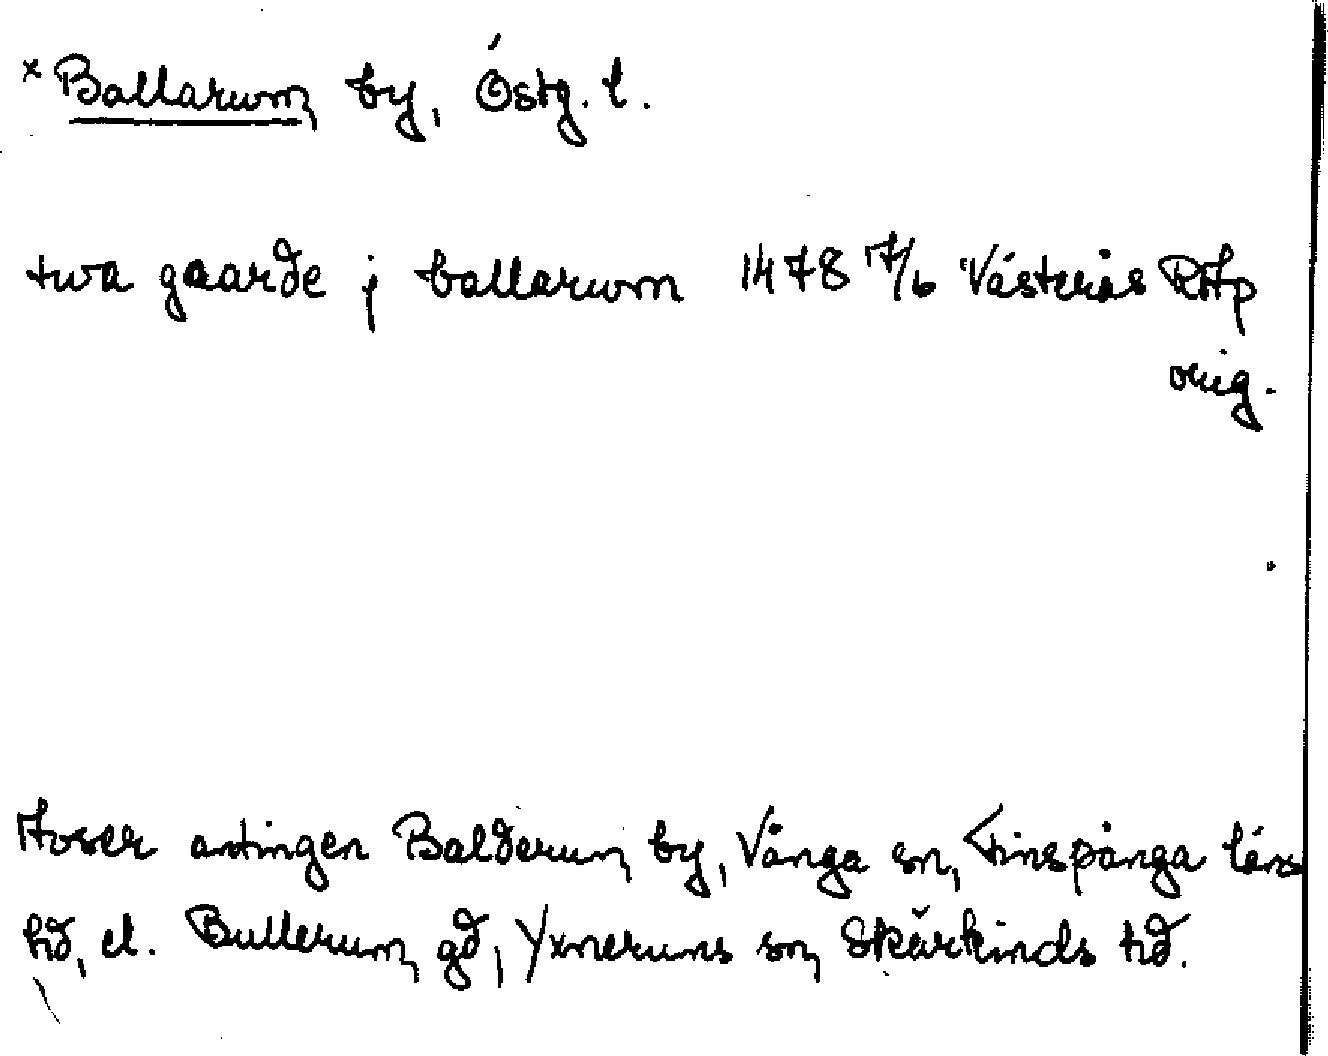 × Ballarum, by, Östg. l.
twa gaarde j ballarum 1478 17/6 Västerås RAp
orig.
Avser antingen Balderum, by, Vånga sn, Finspånga läns
hd, el. Bullerum, gd, Yxneruns sn, Skärkinds hd.